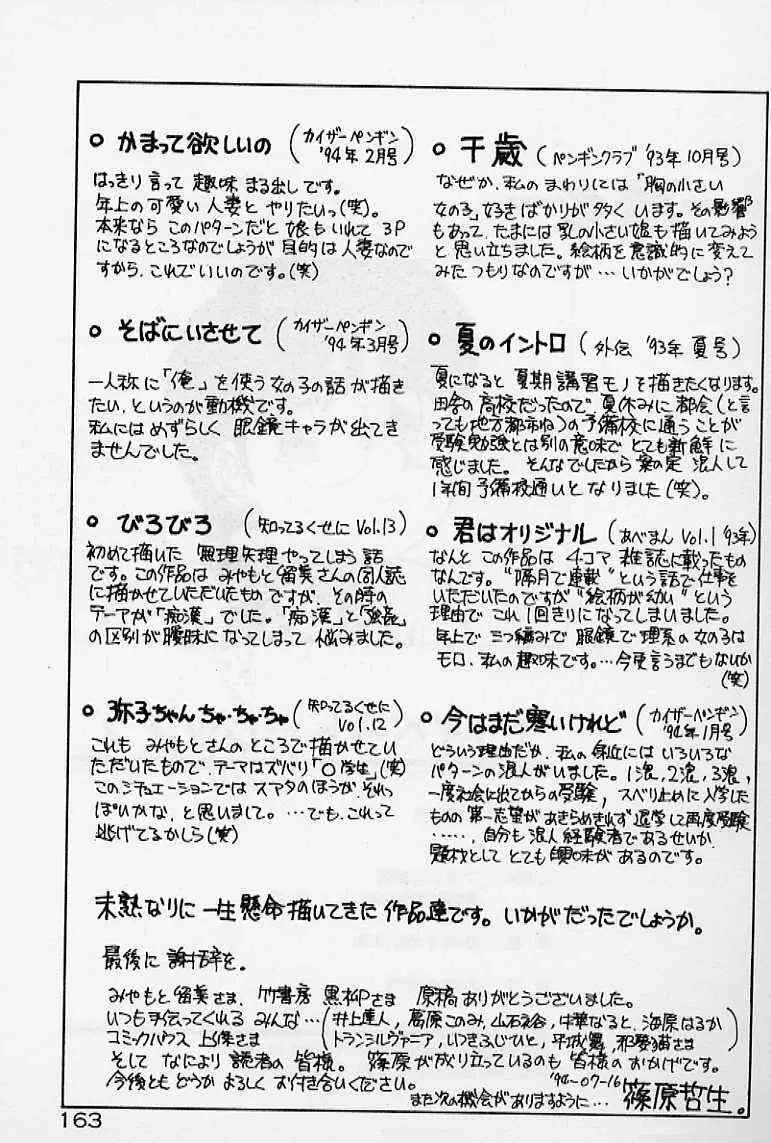 ○ かまって欲しいの (カイザーペンギン '94年2月号)
はっきり言って 趣味 まる出しです。
年上の可愛い 人妻と やりたいっ(笑)。
本来なら このパターンだと 娘もいれて 3P
になるところなのでしょうが 目的は人妻なので
すから、これでいいのです。(笑)
○ そばにいさせて (カイザーペンギン '94年3月号)
一人称に「俺」を使う女の子の話が描き
たい、というのが動機です。
私にはめずらしく 眼鏡キャラが出てき
ませんでした。
○ びろびろ (知ってるくせに Vol.13)
初めて描いた 無理矢理やってしまう話
です。この作品は みやもと留美さんの同人誌
に描かせていただいたものですが、その時の
テーマが「痴漢」でした。「痴漢」と「強姦」
の区別が曖昧になってしまって 悩みました。
○ 弥子ちゃん ちゃ・ちゃ・ちゃ (知ってるくせに Vol.12)
これも みやもとさんの ところで描かせてい
ただいたもので、テーマはズバリ「○学生」(笑)
このシチュエーションでは スマタのほうが、それっ
ぽいかな、と思いまして。…でも、これって
逃げてるかしら(笑)
○ 千歳 (ペンギンクラブ '93年10月号)
なぜか、私の まわりには「胸の小さい
女の子」好きばかりが多く います。その影響
もあって、たまには 乳の小さい娘も描いてみよう
と思い立ちました。絵柄を意識的に変えて
みたつもりなのですが…いかがでしょう?
○ 夏のイントロ (外伝 '93年 夏号)
夏になると 夏期講習モノを描きたくなります。
田舎の高校だったので 夏休みに都会(と言
っても地方都市ね)の予備校に通うことが
受験勉強とは別の意味で とても新鮮に
感じました。そんなでしたから 案の定 浪人して
1年間 予備校通いと なりました(笑)。
○ 君はオリジナル (あべまん Vol.1 93年)
なんと この作品は 4コマ 雑誌に載ったもの
なんです。"隔月で連載"という話で仕事を
いただいたのですが"絵柄が幼い"という
理由で これ1回きりになってしまいました。
年上で 三つ編みで 眼鏡で 理系の女の子は
モロ、私の趣味です。…今更言うまでもないか
(笑)
○ 今はまだ寒いけれど (カイザーペンギン '94年1月号)
どういう理由だか、私の 身近には いろいろな
パターンの浪人がいました。1浪、2浪、3浪、
一度社会に出てからの受験、スベリ止めに入学した
ものの 第一志望が あきらめきれず 退学して再度受験
……、自分も浪人経験者であるせいか
題材として とても興味が あるのです。
未熟なりに 一生懸命描いてきた 作品達です。いかがだったでしょうか。
最後に 謝辞を。
みやもと留美さま、竹書房 黒柳Pさま 原稿ありがとうございました。
いつも手伝ってくれる みんな…(井上達人, 葛原このみ, 中華なると, 海原はるか
トランシルヴァニア, いつきふじひと, 邪要猫さま)
コミックハウス 上條さま
そして なにより 読者の皆様。 篠原が成り立っているのも 皆様のおかげです。
今後とも どうか よろしく お付き合いください。 '94-07-16
また次の機会がありますように… 篠原哲生。
163